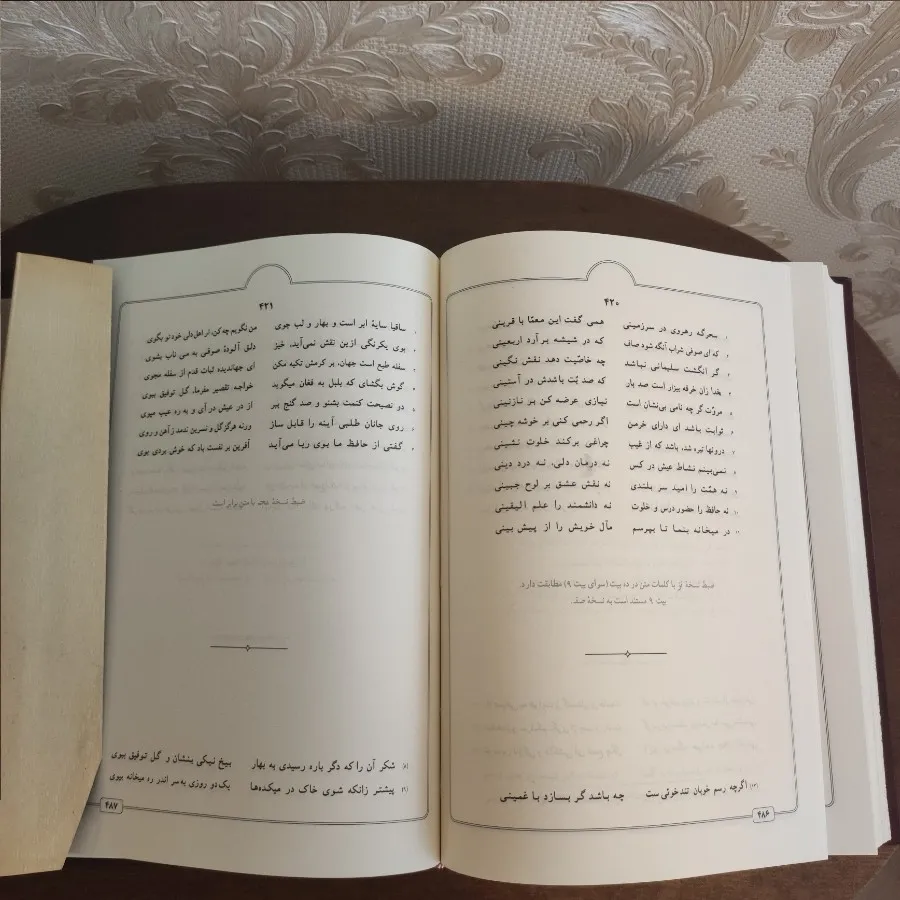 ۴۲۰
۱ سحرگه رهروی در سرزمینی همی گفت این معمّا با قرینی
۲ که ای صوفی شراب آنگه شود صاف که در شیشه برآرد اربعینی
۳ گر انگشت سلیمانی نباشد چه خاصیّت دهد نقش نگینی
۴ خدا زان خرقه بیزار است صد بار که صد بُت باشدش در آستینی
۵ مروّت گر چه نامی بی‌نشان است نیازی عرضه کن بر نازنینی
۶ ثوابت باشد ای دارای خرمن اگر رحمی کنی بر خوشه چینی
۷ درونها تیره شد، باشد که از غیب چراغی برکند خلوت نشینی
۸ نمی‌بینم نشاط عیش در کس نه درمان دلی، نه درد دینی
۹ نه همّت را امید سر بلندی نه نقش عشق بر لوح جبینی
۱۰ نه حافظ را حضور درس و خلوت نه دانشمند را علم الیقینی
۱۱ در میخانه بنما تا بپرسم مآل خویش را از پیش بینی
ضبط نسخهٔ با کلمات متن در ده بیت (سوای بیت ۹) مطابقت دارد.
بیت ۹ مستند است به نسخهٔ صف.
(۱۲) اگرچه رسم خوبان تندخوئی ست چه باشد گر بسازد با غمینی
۴۸۶
۴۲۱
۱ ساقیا سایهٔ ابر است و بهار و لب جوی من نگویم چه کن، ار اهل دلی خود تو بگوی
۲ بوی یکرنگی ازین نقش نمی‌آید، خیز دلق آلودهٔ صوفی به می ناب بشوی
۳ سفله طبع است جهان، بر کرمش تکیه مکن ای جهاندیده ثبات قدم از سفله مجوی
۴ گوش بگشای که بلبل به فغان میگوید خواجه تقصیر مفرما، گل توفیق ببوی
۵ دو نصیحت کنمت بشنو و صد گنج ببر از در عیش در آی و به ره عیب مپوی
۶ روی جانان طلبی آینه را قابل ساز ورنه هرگز گل و نسرین ندمد ز آهن و روی
۷ گفتی از حافظ ما بوی ریا می‌آید آفرین بر نفست باد که خوش بردی بوی
ضبط نسخهٔ با متن برابر است
(۸) شکر آن را که دگر باره رسیدی به بهار بیخ نیکی بنشان و گل توفیق ببوی
(۹) پیشتر زانکه شوی خاک در میکده‌ها یک دو روزی به سر اندر ره میخانه بپوی
۴۸۷